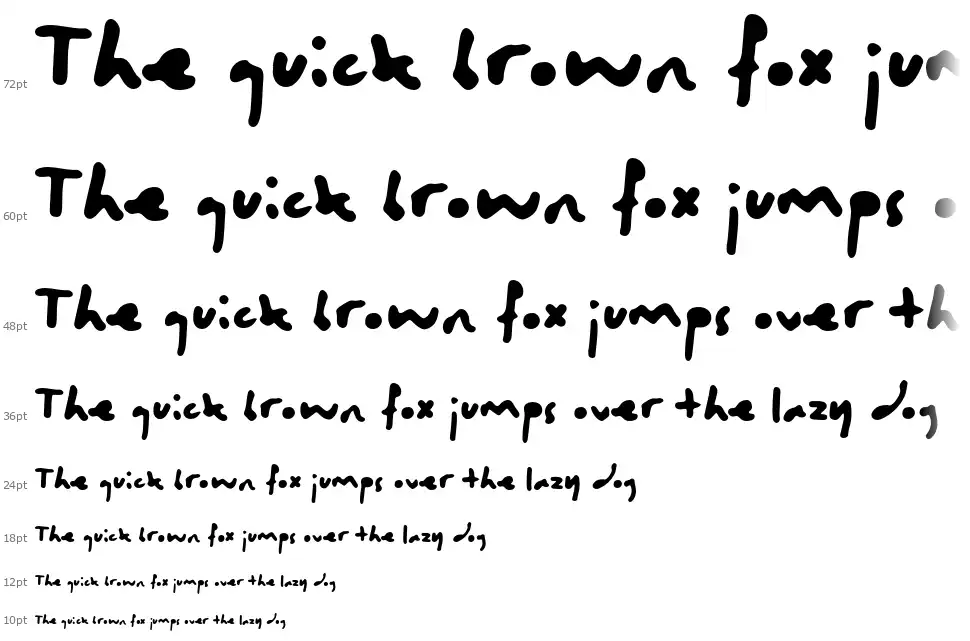 72pt The quick brown fox jum
60pt The quick brown fox jumps o
48pt The quick brown fox jumps over th
36pt The quick brown fox jumps over the lazy dog
24pt The quick brown fox jumps over the lazy dog
18pt The quick brown fox jumps over the lazy dog
12pt The quick brown fox jumps over the lazy dog
10pt The quick brown fox jumps over the lazy dog